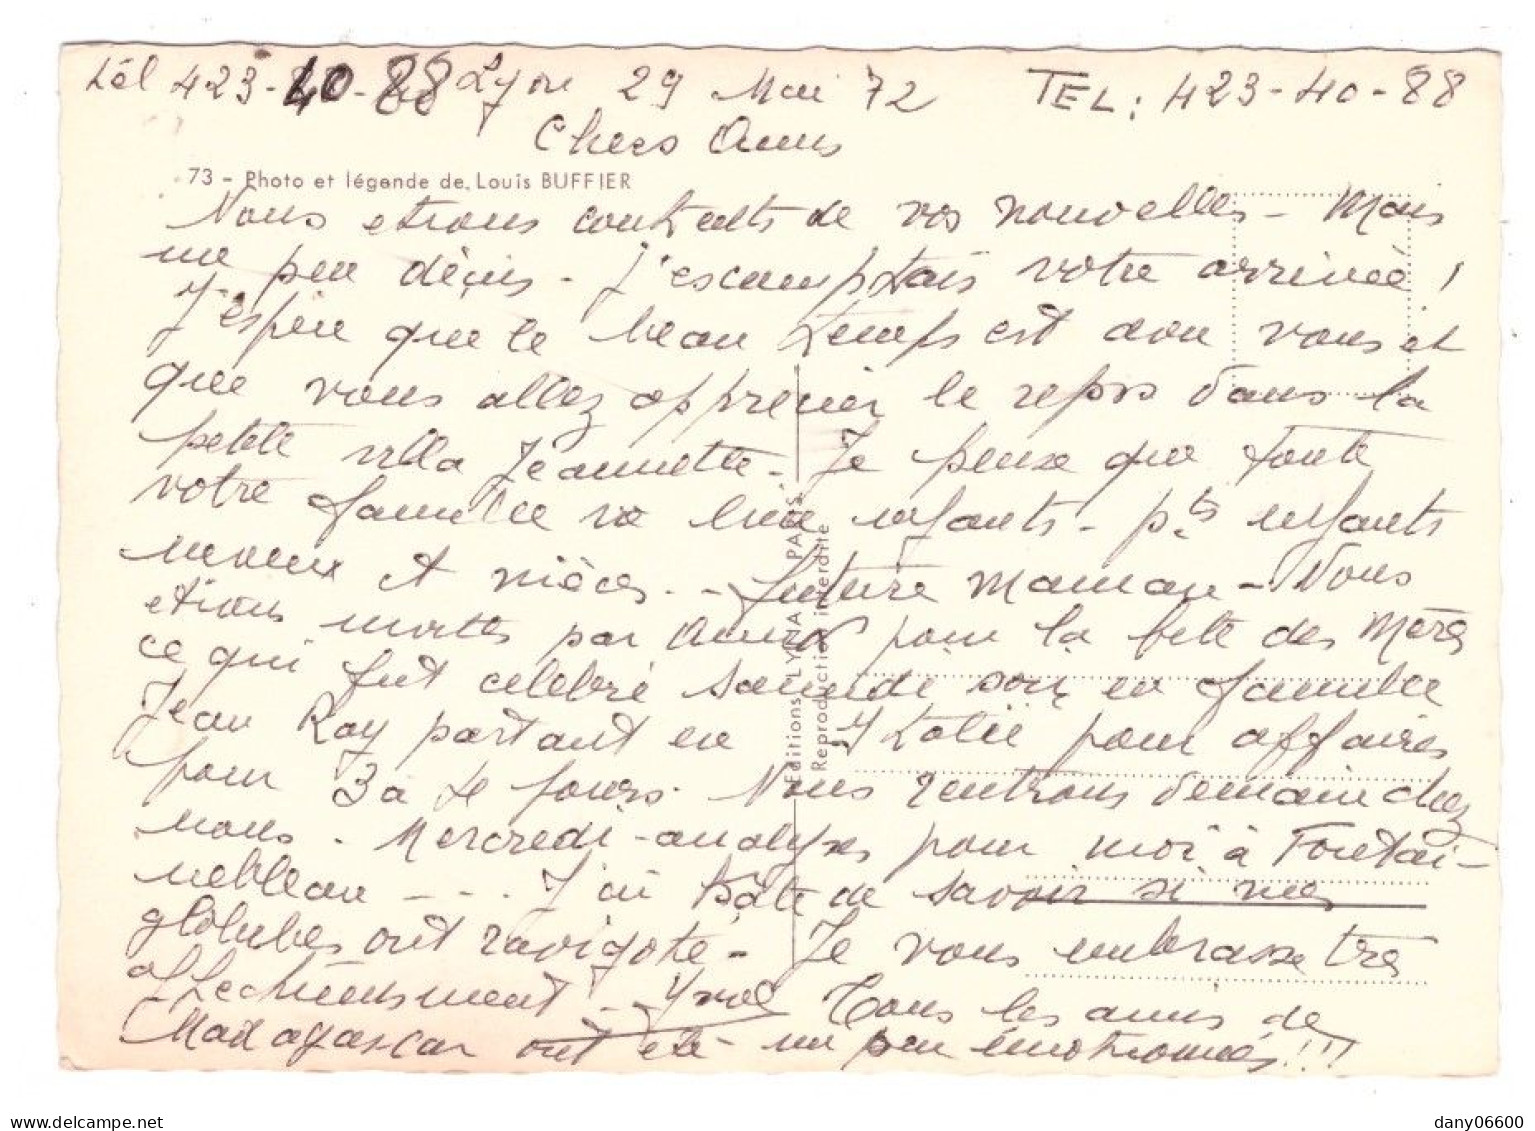 tél 423-40-88 Lyon 29 Mai 72 TEL: 423-40-88
Chers Amis
73 - Photo et légende de Louis BUFFIER
Nous etions contents de vos nouvelles - Mais
un peu déçus - J'escomptais votre arrivée !
J'espère que le beau temps est avec vous et
que vous allez apprécier le repos dans la
petite villa Jeannette - Je pense que toute
votre famille va bien enfants - pts enfants
neveux et nièces - - future maman - Nous
etions invités par pour la fete des Mères
ce qui fut celebré samedi soir en famille
Jean Ray partant en Italie pour affaires
pour 3 a 4 jours. Nous rentrons demain chez
nous. Mercredi - analyses pour moi à Fontai-
nebleau - - - . J'ai hâte de savoir si mes
globules ont ravigoté - Je vous embrasse très
affectueusement - Tous les amis de
Madagascar ont été un peu émotionnés !!!
Editions LYNA PARIS
Reproduction interdite
dany06600